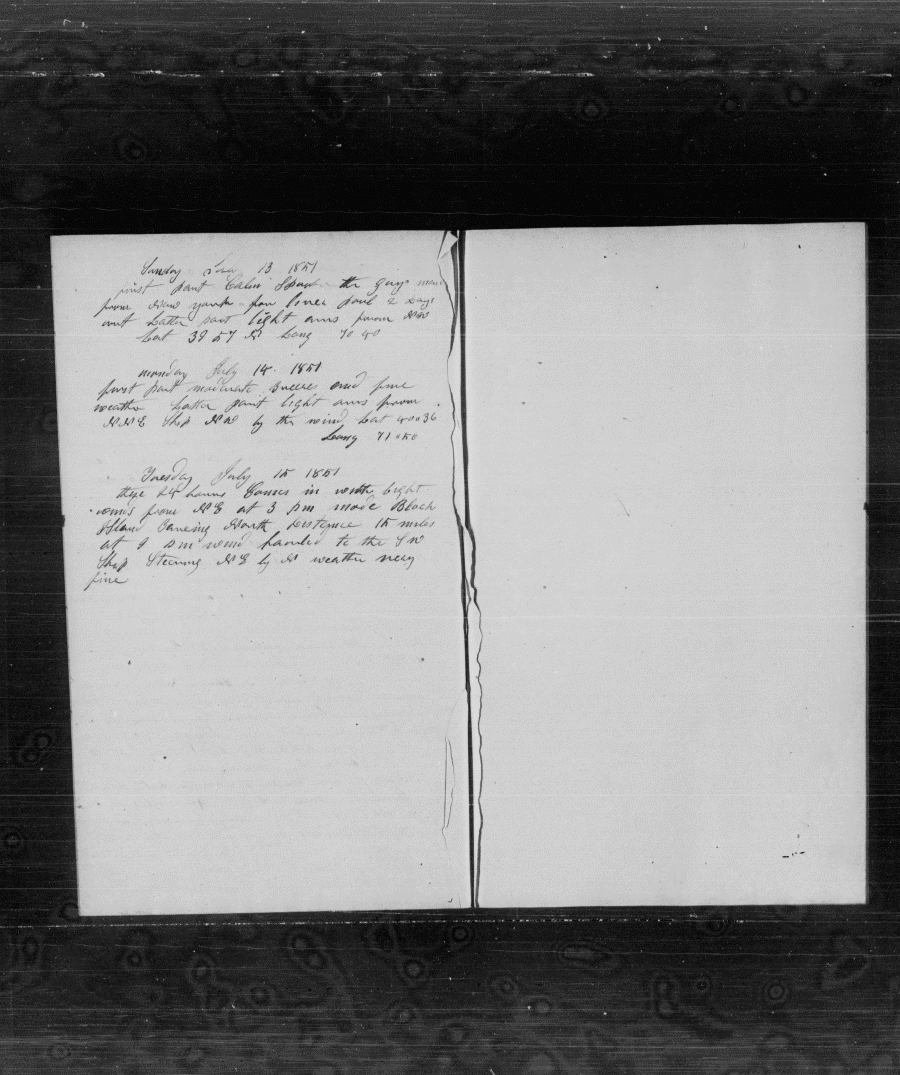 Sunday 13 1851
first part Calm Spoke the guy
from New york for liver pool 2 days
out Latter part light airs from NW
Lat 39 57 N Long 70 40
monday July 14 1851
first part moderate Breezes and fine
weather Latter part light airs from
NNE Ship NW by the wind Lat 40 " 36
Long 71 " 50
Tuesday July 15 1851
these 24 hours Comes in with Light
winds from NE at 3 pm made Block
Island Bearing North Distance 15 miles
at 9 pm wind hauled to the SW
Ship Steering NE by N weather very
fine